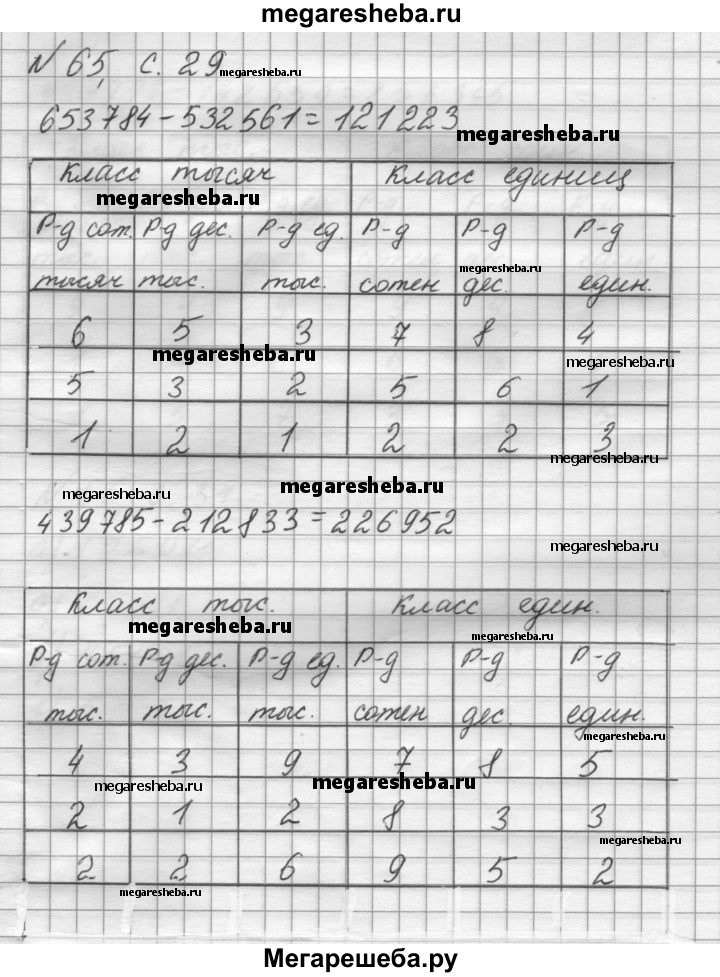 megaresheba.ru
N 65, с. 29 megaresheba.ru
653784-532561=121223
megaresheba.ru
Класс тысяч Класс единиц
megaresheba.ru
Р-д сот. Р-д дес. Р-д ед. Р-д Р-д Р-д
megaresheba.ru
тысяч тыс. тыс. сотен дес. един.
6 5 3 7 8 4
megaresheba.ru megaresheba.ru
5 3 2 5 6 1
1 2 1 2 2 3
megaresheba.ru
megaresheba.ru megaresheba.ru
439785-212833=226952
megaresheba.ru
Класс тыс. Класс един.
megaresheba.ru megaresheba.ru
Р-д сот. Р-д дес. Р-д ед. Р-д Р-д Р-д
тыс. тыс. тыс. сотен дес. един.
megaresheba.ru
4 3 9 7 8 5
megaresheba.ru megaresheba.ru
2 1 2 8 3 3
megaresheba.ru
2 2 6 9 5 2
megaresheba.ru
Мегарешеба.ру